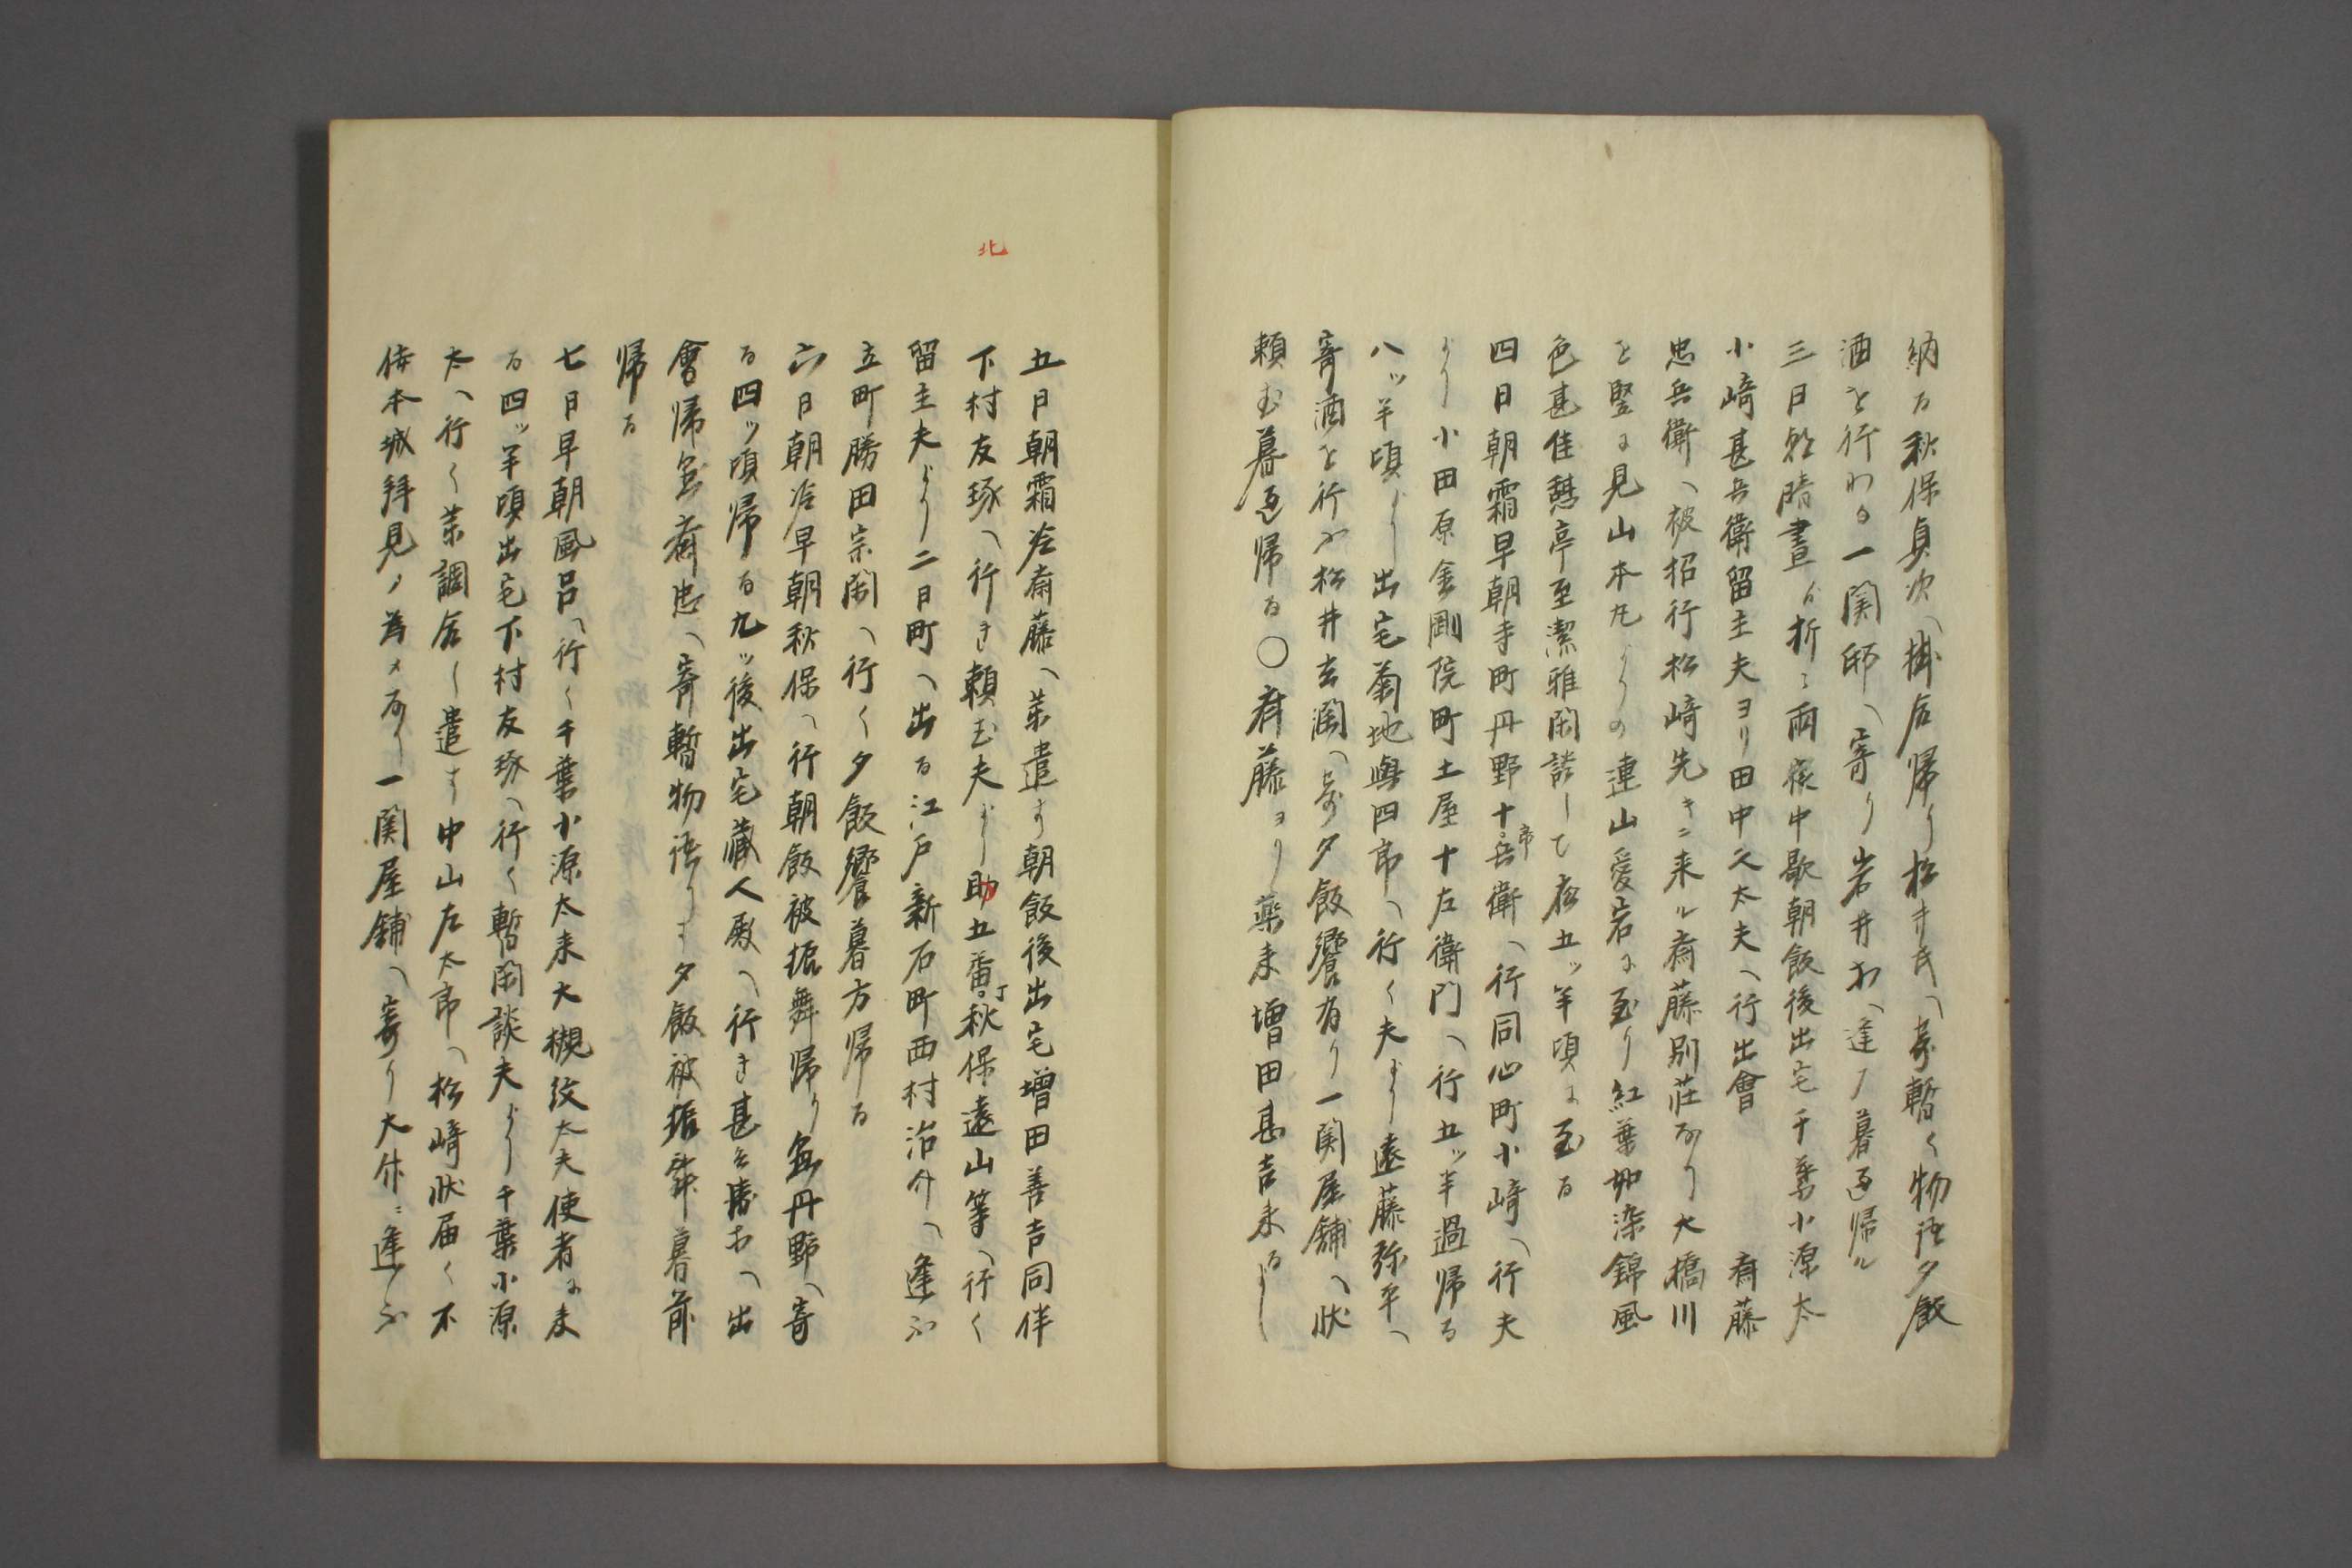 納る秋保貞次へ掛合帰り松井氏へ寄暫く物語夕飯
酒を行わる一関邸へ寄り岩井おへ逢ノ暮過帰ル
三日熊晴昼ゟ折々雨夜中歇朝飯後出宅千葉小源太
小崎甚兵衛留主夫ヨリ田中文太夫へ行出會 斎藤
忠兵衛へ被招行松崎先キニ来ル斎藤別荘なり大橋川
を竪に見山本丸よりの連山愛宕に至り紅葉如染錦風
色甚佳憩亭至潔雅閑談して夜五ッ半頃に至る
四日朝霜早朝寺町丹野十兵衛へ行同心町小崎へ行夫
より小田原金剛院町土屋十左衛門へ行五ッ半過帰る
八ッ半頃より出宅菊地與四郎へ行く夫より遠藤弥平へ
寄酒を行ふ松井玄潤へ寄夕飯饗有り一関屋鋪へ状
頼む暮過帰る〇斎藤ヨリ薬来増田甚吉来るよし
北
五日朝霜冷斎藤へ薬遣す朝飯後出宅増田善吉同伴
下村友琢へ行き頼む夫より助五番丁秋保遠山等へ行く
留主夫より二日町へ出る江戸新石町西村治介へ逢ふ
立町勝田宗閑へ行く夕飯饗暮方帰る
六日朝冷早朝秋保へ行朝飯被振舞帰り無丹野へ寄
る四ッ頃帰る九ッ後出宅蔵人殿へ行き甚兵衛おへ出
會帰宅斎忠へ寄暫物語りす夕飯被振舞暮前
帰る
七日早朝風呂へ行く千葉小源太来大槻紋太夫使者に来
る四ッ半頃出宅下村友琢へ行く暫閑談夫より千葉小源
太へ行く薬調合し遣す中山左太郎へ松崎状届く不
侍本城拝見ノ為メなり一関屋鋪へ寄り大作ニ逢ふ